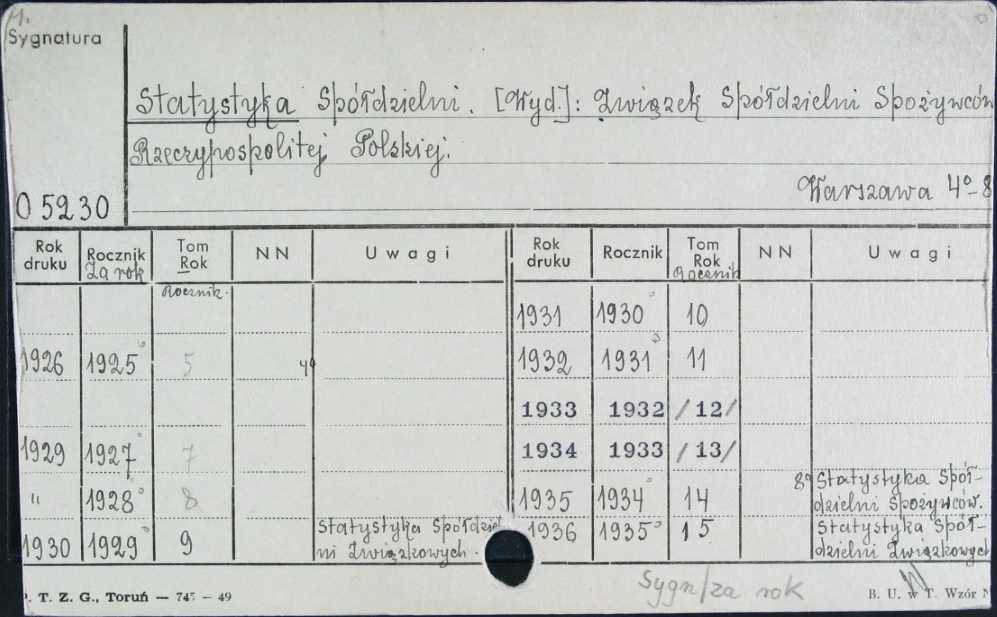 M.
Sygnatura
Statystyka Spółdzielni. [Wyd]: Związek Spółdzielni Spożywców
Rzeczypospolitej Polskiej.
Warszawa 4°-8
O 5230
Rok druku Rocznik Za rok Tom Rok Rocznik. NN Uwagi
1926 1925 5 4°
1929 1927 7
" 1928 8
1930 1929 9 Statystyka Spółdziel
ni Związkowych.
Rok druku Rocznik Tom Rok Rocznik NN Uwagi
1931 1930 10
1932 1931 11
1933 1932 /12/
1934 1933 /13/
1935 1934 14 8° Statystyka Spół-
dzielni Spożywców.
1936 1935 15 Statystyka Spół-
dzielni Związkowych
Sygn/za rok
P. T. Z. G., Toruń — 745 — 49
B. U. w T. Wzór N